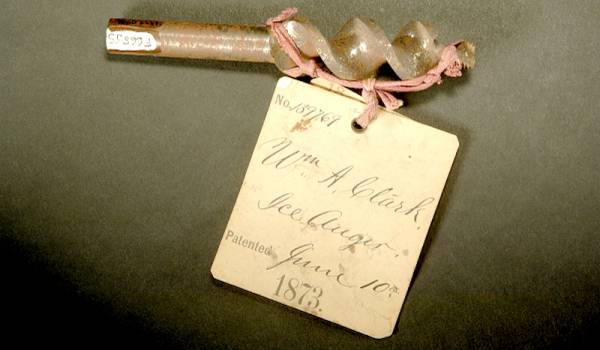 No. 139769
Wm A. Clark.
Ice Auger.
Patented June 10th
1873.